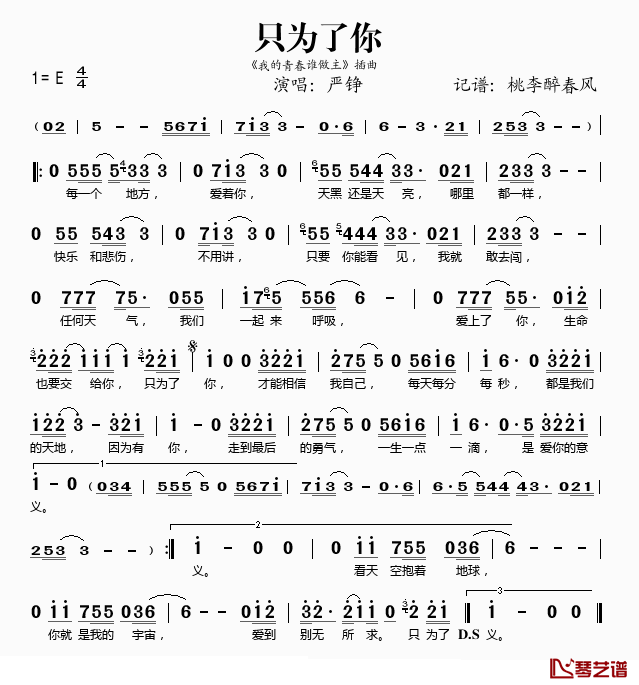 只为了你
《我的青春谁做主》插曲
1= E 4/4
演唱：严铮
记谱：桃李醉春风
(02 | 5 - - 5671 | 713 3 - 0·6 | 6 - 3· 21 | 253 3 - - |
0 555 5 4 33 3 | 0 713 3 0 | 6 55 544 33· 021 | 233 3 - - |
每一个 地方， 爱着你， 天黑 还是天 亮， 哪里 都一样，
0 55 543 3 | 0 713 3 0 | 6 55 5 444 33· 021 | 233 3 0 0 |
快乐 和悲伤， 不用讲， 只要 你能看 见， 我就 敢去闯，
0 777 75· 055 | 17 6 5 556 6 - | 0 777 55· 012 |
任何天 气， 我们 一起来 呼吸， 爱上了 你， 生命
3 222 111 1 3 221 | 1 0 0 3221 | 275 5 0 5616 | 1 6· 0 3221 |
也要交 给你， 只为了 你， 才能相信 我自己， 每天每分 每 秒， 都是我们
122 3 - 321 | 1 0 0 3221 | 275 5 0 5616 | 1 6· 0·5 3221 |
的天地， 因为有 你， 走到最后 的勇气， 一生一点 一 滴， 是 爱你的意
1
1 - 0 (034 | 555 5 0 5671 | 713 3 - 0·6 | 6· 5 544 43· 021 |
义。
2
253 3 - - ) :| 1 - 0 0 | 0 11 755 036 | 6 - - - |
义。 看天 空抱着 地球，
3
0 11 755 036 | 6 - - 012 | 32· 211 0 221 | 1 - 0 0 |
你就 是我的 宇宙， 爱到 别无 所 求。 只 为了 D.S 义。
琴艺谱